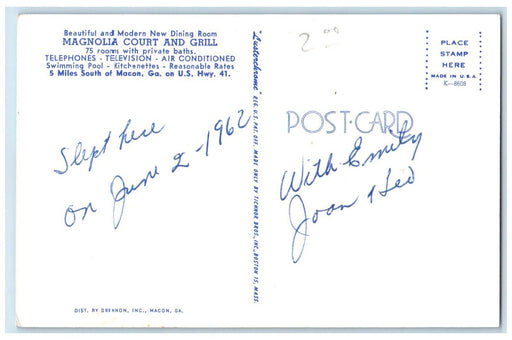 Beautiful and Modern New Dining Room
MAGNOLIA COURT AND GRILL
75 rooms with private baths.
TELEPHONES - TELEVISION - AIR CONDITIONED
Swimming Pool - Kitchenettes - Reasonable Rates
5 Miles South of Macon, Ga. on U.S. Hwy. 41.
Slept here
on June 2-1962
DIST. BY DREANON, INC., MACON, GA.
"Lusterchrome" REG. U.S. PAT. OFF. MADE ONLY BY TICHNOR BROS., INC., BOSTON 15, MASS.
2 00
PLACE
STAMP
HERE
MADE IN U.S.A.
K-8608
POST-CARD
With Emily
Joan &